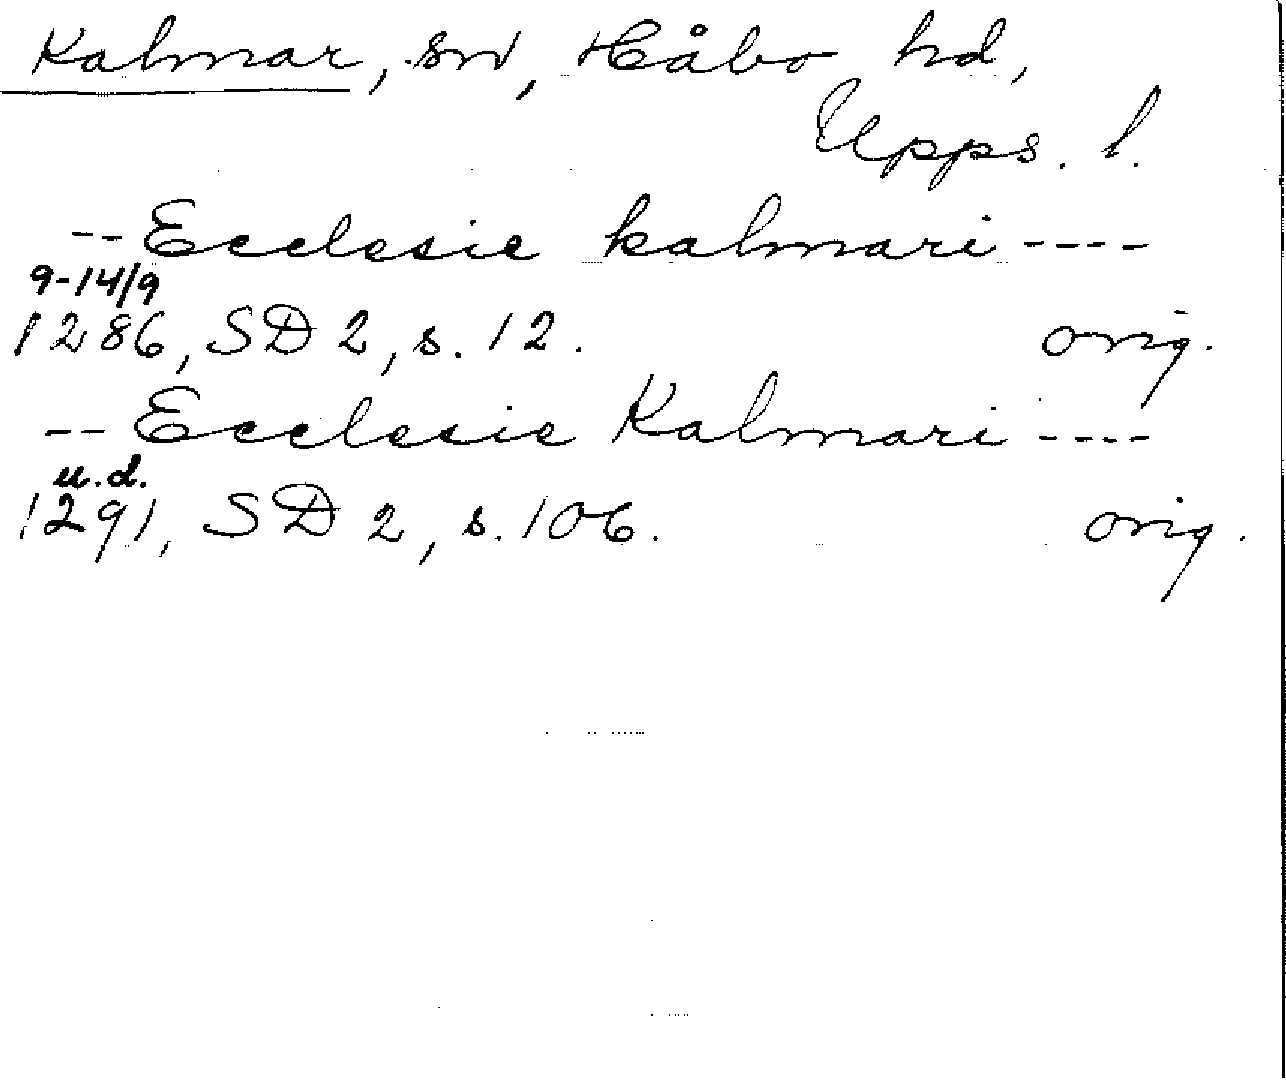 Kalmar, sn, Håbo hd,
Upps. l.
-- Ecclesie kalmari ----
9-14/9
1286, SD 2, s. 12. orig.
-- Ecclesie Kalmari ----
u.d.
1291, SD 2, s. 106. orig.